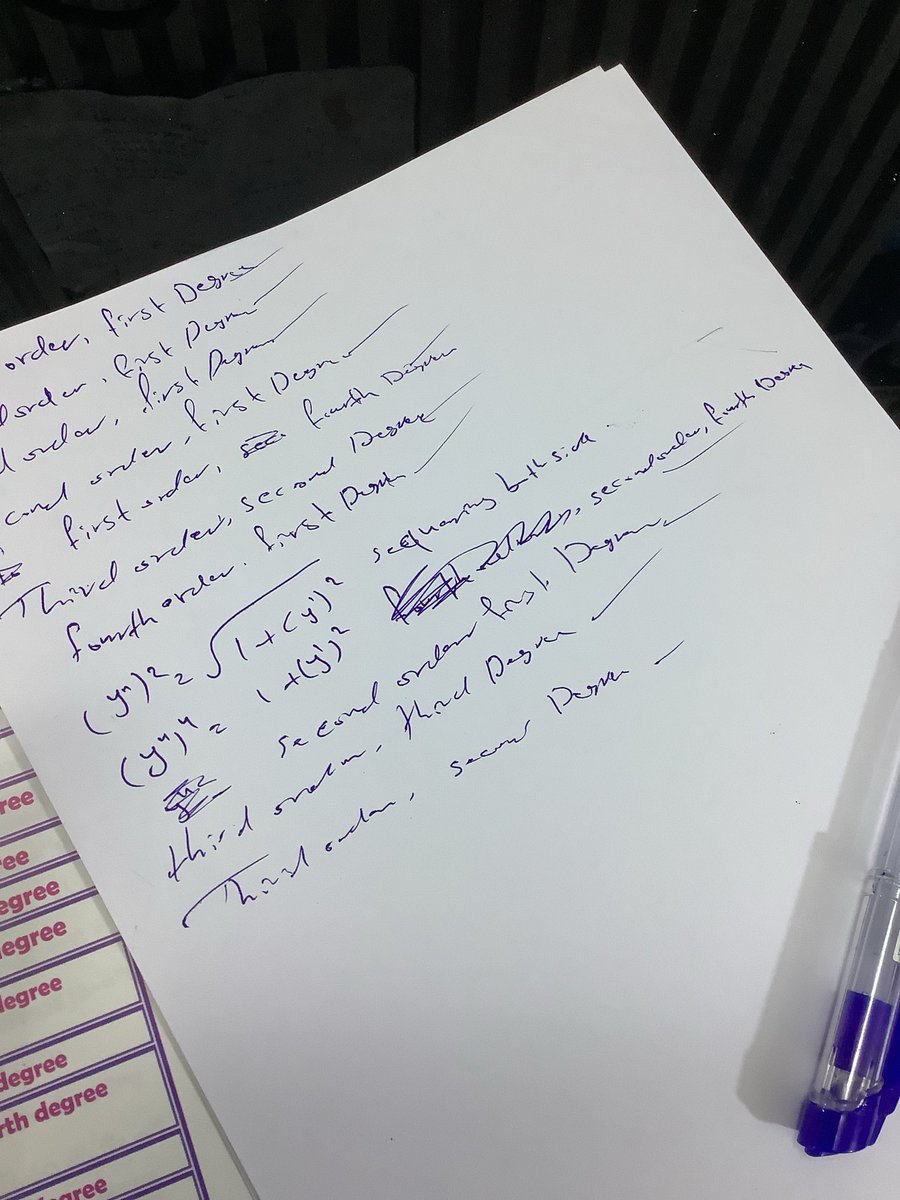 order, first Degree
order, first Degree
order, first Degree
cond order, first Degree
first order, fourth Degree
Third order, second Degree
fourth order, first Degree
(y")² = √1+(y')² sequaring both side
(y")⁴ = 1+(y')² second order, fourth Degree
second order first Degree
third order, third Degree
Third order, second Degree
ree
ee
egree
degree
degree
degree
rth degree
gree